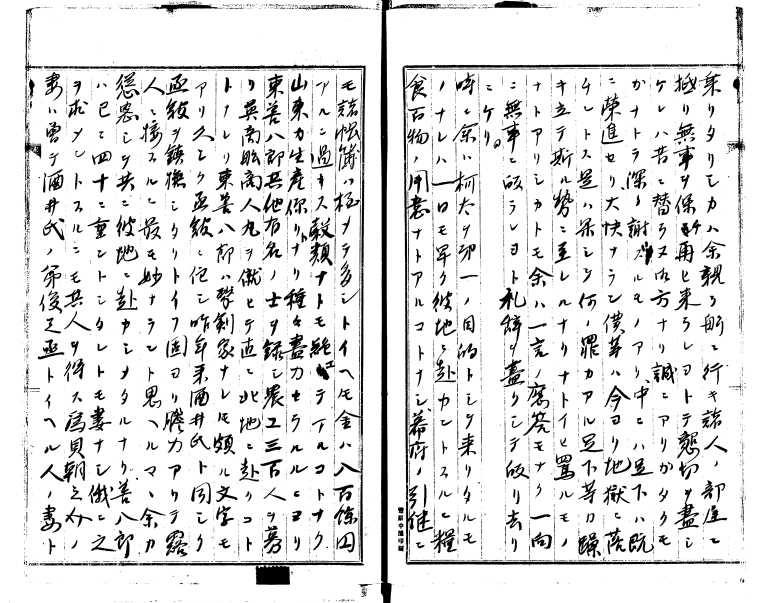 乗リタリシカハ余親ラ船ニ行キ諸人ノ部屋ニ
抵リ無事ヲ保チ再ヒ来ラレヨトテ懇切ヲ盡シ
ケレハ昔ニ替ラヌ御方ナリ誠ニアリカタクモ
カナトテ深ク謝スルモノアリ中ニハ足下ハ既
ニ栄進セリ大快ナラン僕等ハ今ヨリ地獄ニ落
チントス是ハ果シテ何ノ罪カアル足下等カ躁
キ立テ斯ル勢ニ至レルナリナトイヒ罵ルモノ
ナトアリシカトモ余ハ一言ノ答モナク一向
ニ無事ニ皈ラレヨト礼辞ヲ盡シテ皈リ去リ
ニケリ
時ニ余ハ柯太ヲ第一ノ目的トシテ来リタルモ
ノナレハ一日モ早ク彼地ニ赴カントスルニ糧
食百物ノ用意ナトアルコトナシ幕府ノ引継ニ
モ諸帳簿ハ極メテ多シトイヘモ金ハ八百餘円
アルニ過キス穀類ナトモ絶エテアルコトナク
山東カ生産係リナリ種々盡力セラルルニヨリ
東善八郎其他有名ノ士ヲ録シ農工三百人ヲ募
リ英商船商人丸ヲ僦ヒテ直ニ北地ニ赴クコト
トナレリ東善八郎ハ撃剣家ナレモ頗ル文字モ
アリ久シク函館ニ住シ昨年来酒井氏ト同シク
函館ヲ鎮撫シタリトイフ固ヨリ膽力アリテ露
人ニ接スルニ最モ妙ナラント思ヘルマヽ余カ
慫慂シテ共ニ彼地ニ赴カシメタルナリ善八郎
ハ已ニ四十ニ垂ントシタレトモ妻ナシ俄ニ之
ヲ求メントスルニモ其人ヲ得ス為貝朝之介ノ
妻ハ曽テ酒井氏ノ弟俊之丞トイヘル人ノ妻ト